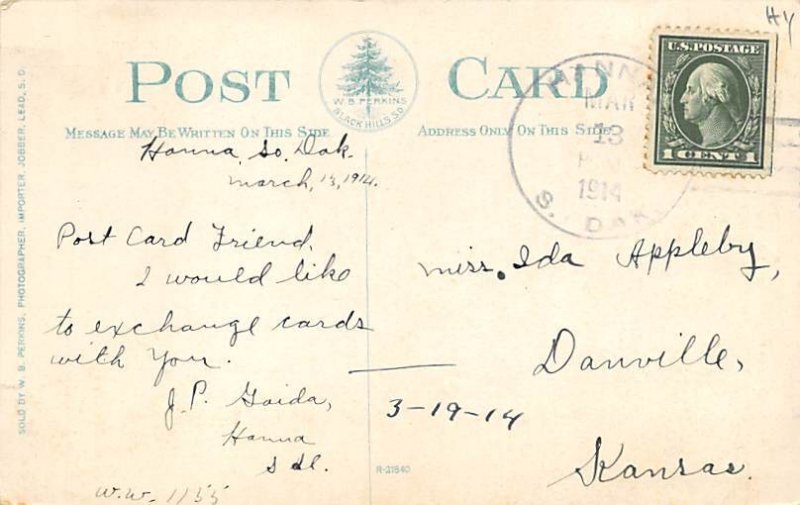 HY
POST CARD
W. B. PERKINS
BLACK HILLS S.D.
MESSAGE MAY BE WRITTEN ON THIS SIDE
ADDRESS ONLY ON THIS SIDE
U.S. POSTAGE
1 CENT 1
HANNA
MAR
13
1914
S. DAK
SOLD BY W. B. PERKINS, PHOTOGRAPHER, IMPORTER, JOBBER, LEAD, S. D.
Hanna, So. Dak.
March, 13, 1914.
Post Card Friend,
I would like
to exchange cards
with You.
J. P. Goida,
Hanna
W.W. 1155
Miss. Ida Appleby,
Danville,
3-19-14
Kansas.
R-21840